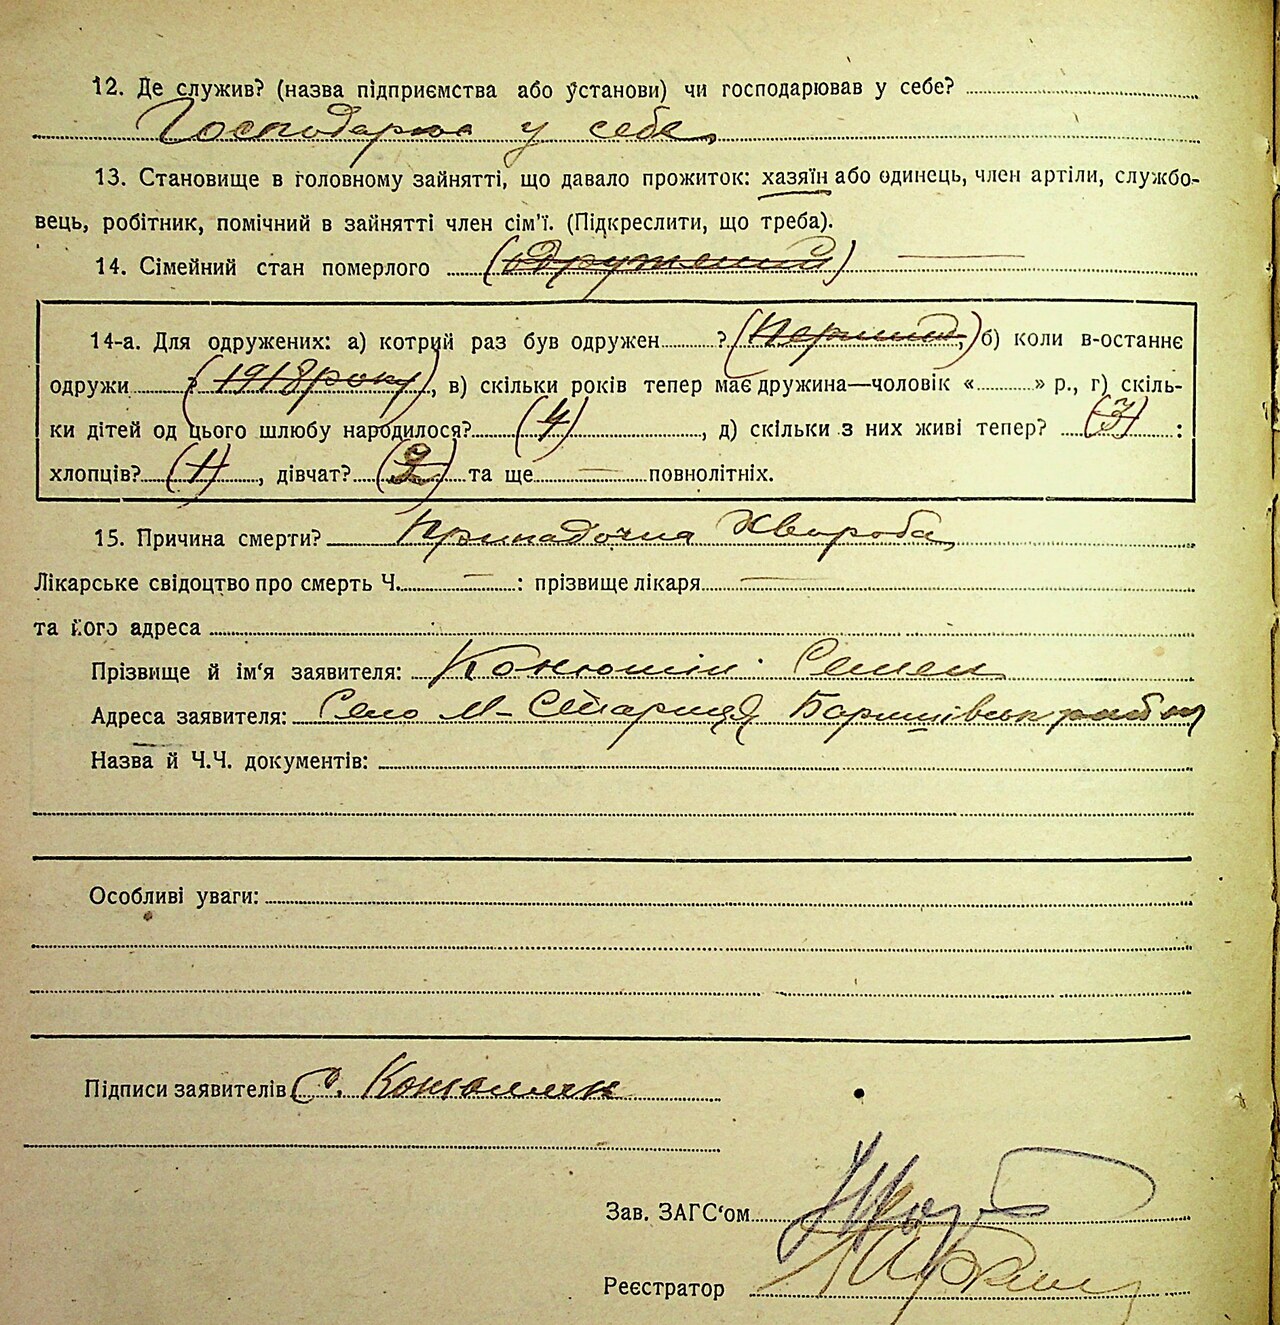 12. Де служив? (назва підприємства або установи) чи господарював у себе?
Господарює у себе
13. Становище в головному зайнятті, що давало прожиток: хазяїн або одинець, член артіли, службо-
вець, робітник, помічний в зайнятті член сім'ї. (Підкреслити, що треба).
14. Сімейний стан померлого (одружений)
14-а. Для одружених: а) котрий раз був одружен ? (Перший,) б) коли в-останнє
одружи ? (1918 року), в) скільки років тепер має дружина—чоловік « » р., г) скіль-
ки дітей од цього шлюбу народилося? (4), д) скільки з них живі тепер? (3) :
хлопців? (1), дівчат? (2) та ще — повнолітніх.
15. Причина смерти? Припадочна Хвороба
Лікарське свідоцтво про смерть Ч. — : прізвище лікаря —
та його адреса
Прізвище й ім'я заявителя: Семен
Адреса заявителя: Село М-Стариця Баришівськ
Назва й Ч.Ч. документів:
Особливі уваги:
Підписи заявителів С.
Зав. ЗАГС'ом
Реєстратор